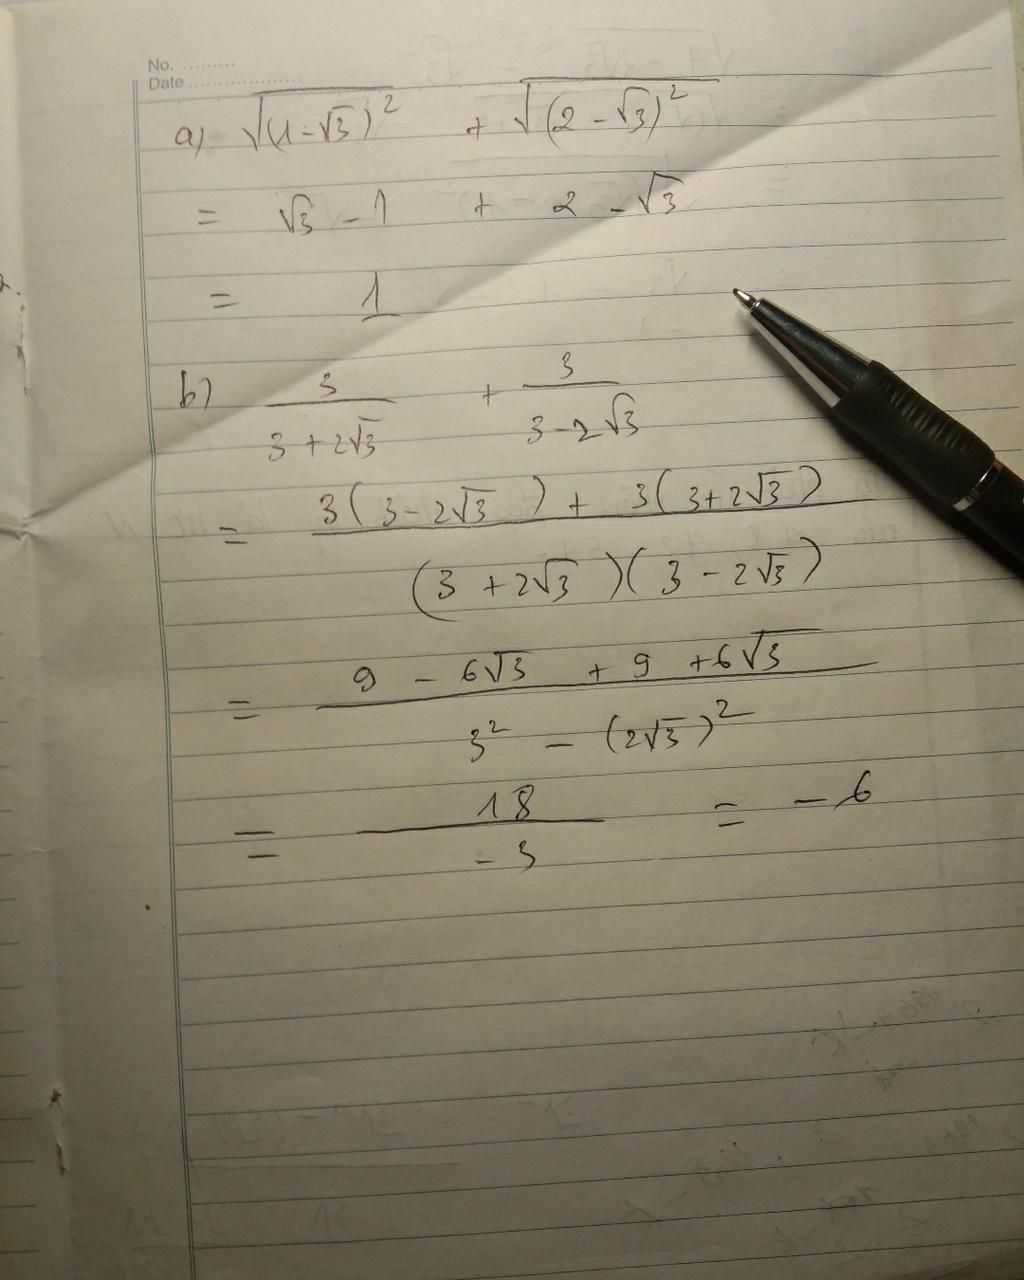 No. .........
Date ....................
a) √(1-√3)² + √(2-√3)²
= √3 - 1 + 2 - √3
= 1
b) 3/(3+2√3) + 3/(3-2√3)
= (3(3-2√3) + 3(3+2√3))/((3+2√3)(3-2√3))
= (9 - 6√3 + 9 + 6√3)/(3² - (2√3)²)
= 18/-3 = -6